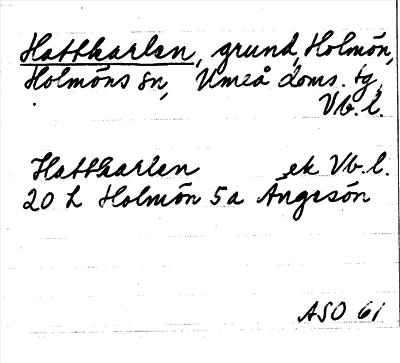 Hattkarlen, grund, Holmön,
Holmöns sn, Umeå doms. tg,
Vb. l.
Hattkarlen ek Vb. l.
20 L Holmön 5a Ängesön
ASO 61